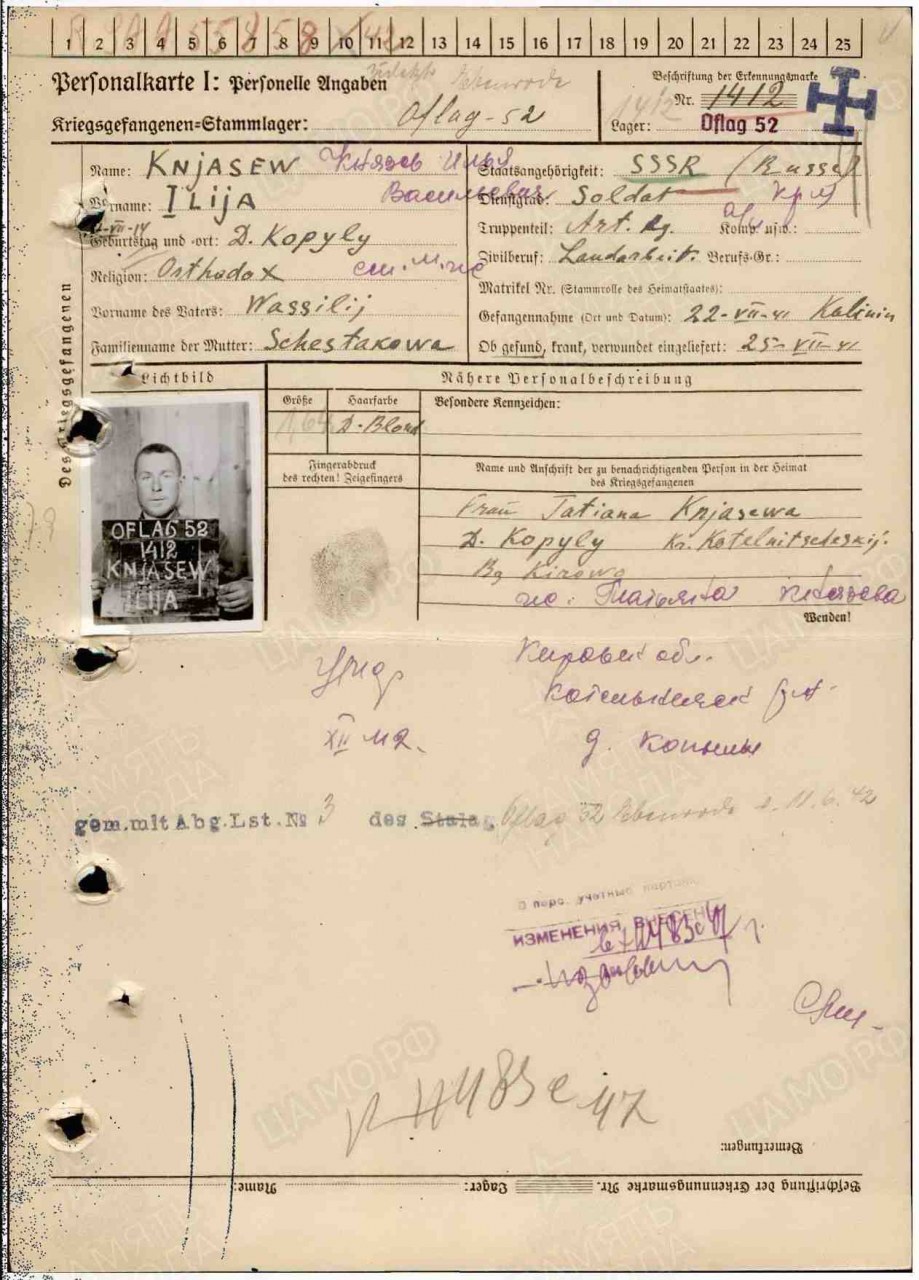 1 2 3 4 5 6 7 8 9 10 11 12 13 14 15 16 17 18 19 20 21 22 23 24 25
Personalkarte I: Personelle Angaben
Kriegsgefangenen-Stammlager: Oflag-52
Beschriftung der Erkennungsmarke
Nr. 1412
Lager: Oflag 52
Des Kriegsgefangenen
Name: KNJASEW Князев Илья
Vorname: ILIJA Васильевич
Geburtstag und -ort: D. Kopyly
Religion: Orthodox
Vorname des Vaters: Wassilij
Familienname der Mutter: Schestakowa
Staatsangehörigkeit: SSSR (Russe)
Dienstgrad: Soldat
Truppenteil: Art. Rg. Komp. usw.:
Zivilberuf: Landarbeit. Berufs-Gr.:
Matrikel Nr. (Stammrolle des Heimatstaates):
Gefangennahme (Ort und Datum): 22-VII-41 Kalinin
Ob gesund, krank, verwundet eingeliefert: 25-VII-41
Lichtbild
OFLAG 52
1412
KNJASEW
ILIJA
Nähere Personalbeschreibung
Größe Haarfarbe Besondere Kennzeichen:
1,64 D-Blond
Fingerabdruck
des rechten! Zeigefingers
Name und Anschrift der zu benachrichtigenden Person in der Heimat
des Kriegsgefangenen
Frau Tatiana Knjasewa
D. Kopyly Kr. Kotelnitscheskij
Bg Kirowo
Татьяна Князева
Wenden!
Кировск обл.
д. Копылы
gem. mit Abg. Lst. № 3 des Stalag Oflag 52 Ebenrode v. 11.6.42
В перс. учетные
ИЗМЕНЕНИЯ ВНЕСЕНЫ
Bemerkungen:
Beschriftung der Erkennungsmarke Nr. Lager: Name:
ЦАМО РФ
ПАМЯТЬ НАРОДА